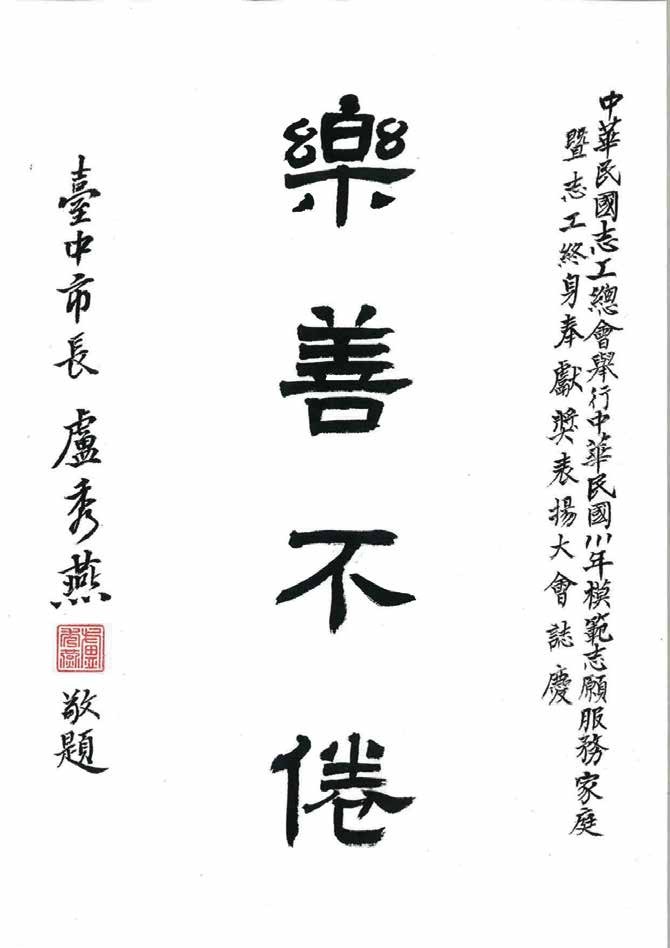 中華民國志工總會舉行中華民國111年模範志願服務家庭
暨志工終身奉獻獎表揚大會誌慶
樂善不倦
臺中市長 盧秀燕 敬題
盧秀燕